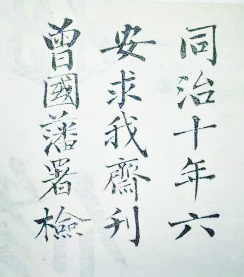 同治十年六
安求我齋刊
曾國藩署檢